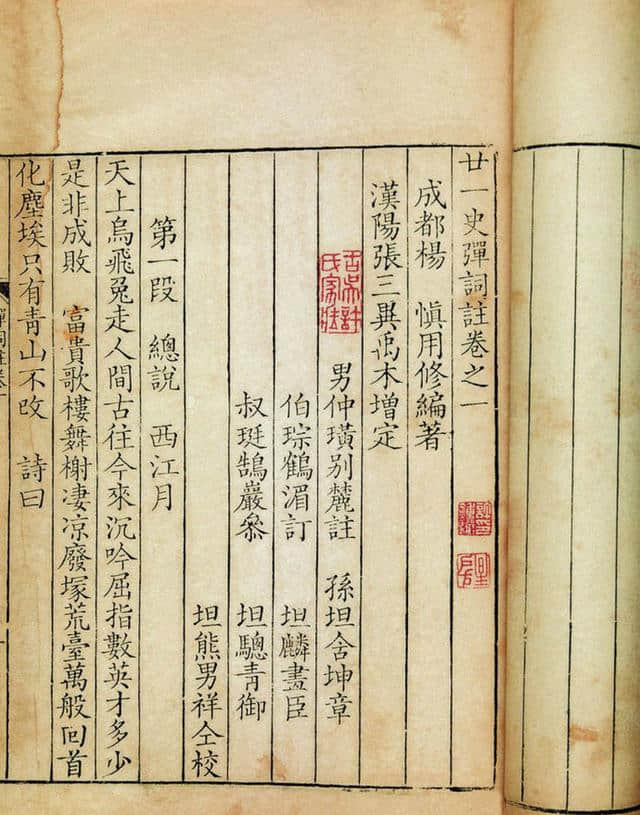 廿一史彈詞註卷之一
成都楊 慎用修編著
漢陽張三異禹木增定
男仲璜別麓註 孫坦舍坤章
伯琮鶴湄訂 坦麟畫臣
叔珽鵠巖叅 坦驄青御
坦熊男祥仝校
第一段 總說 西江月
天上烏飛兔走人間古往今來沉吟屈指數英才多少
是非成敗 富貴歌樓舞榭凄凉廢塚荒臺萬般囬首
化塵埃只有青山不改 詩曰